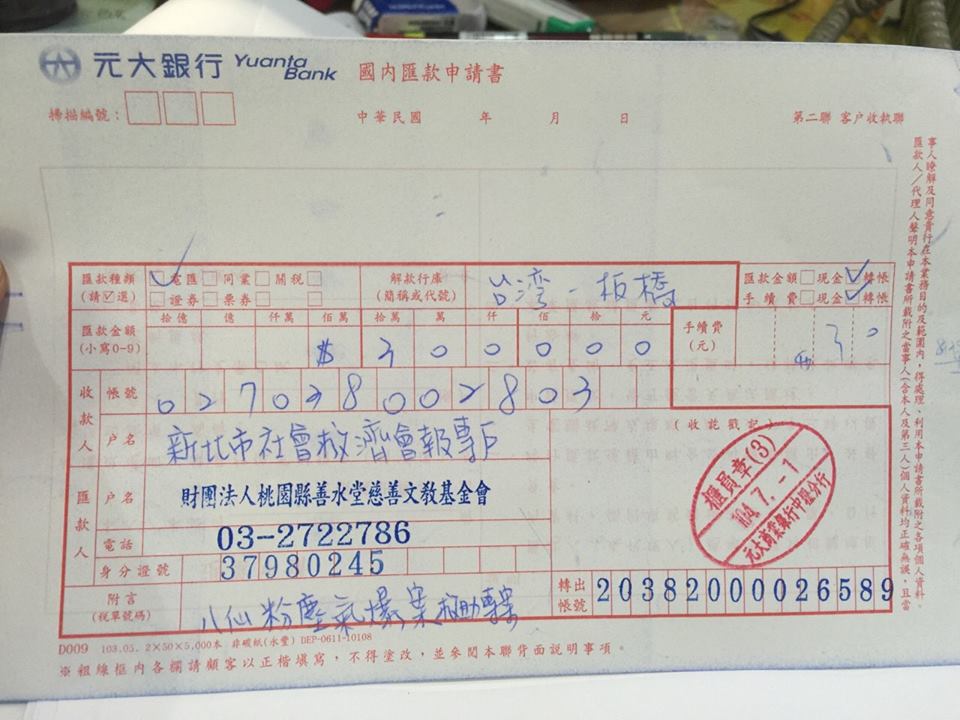 元大銀行 Yuanta Bank 國內匯款申請書
掃描編號：
中華民國 年 月 日
第二聯 客户收執聯
匯款種類 (請☑選) ☑電匯 □同業 □關税 □
□證券 □票券 □ □
解款行庫 (簡稱或代號) 台湾-板橋
匯款金額 □現金 ☑轉帳
手續費 □現金 ☑轉帳
匯款金額 (小寫0-9)
拾億 億 仟萬 佰萬 拾萬 萬 仟 佰 拾 元
$ 3 0 0 0 0 0
手續費 (元) 30
收款人
帳號 027038002803
户名 新北市社會救濟會報專戶
(收訖戳記)
櫃員章(3)
104.7.-1
元大商業銀行中壢分行
匯款人
户名 財團法人桃園縣善水堂慈善文教基金會
電話 03-2722786
身分證號 37980245
轉出帳號 20382000026589
附言 (稅單號碼) 八仙粉塵氣爆案捐助專案
D009 103.05. 2×50×5,000本 非碳紙(水豐) DEP-0611-10108
※粗線框內各欄請顧客以正楷填寫，不得塗改，並參閱本聯背面說明事項。
匯款人／代理人聲明本申請書所載附之當事人(含本人及第三人)個人資料均正確無誤，且當
事人瞭解及同意貴行在本業務目的及範圍內，得處理、利用本申請書所載附之各項個人資料。